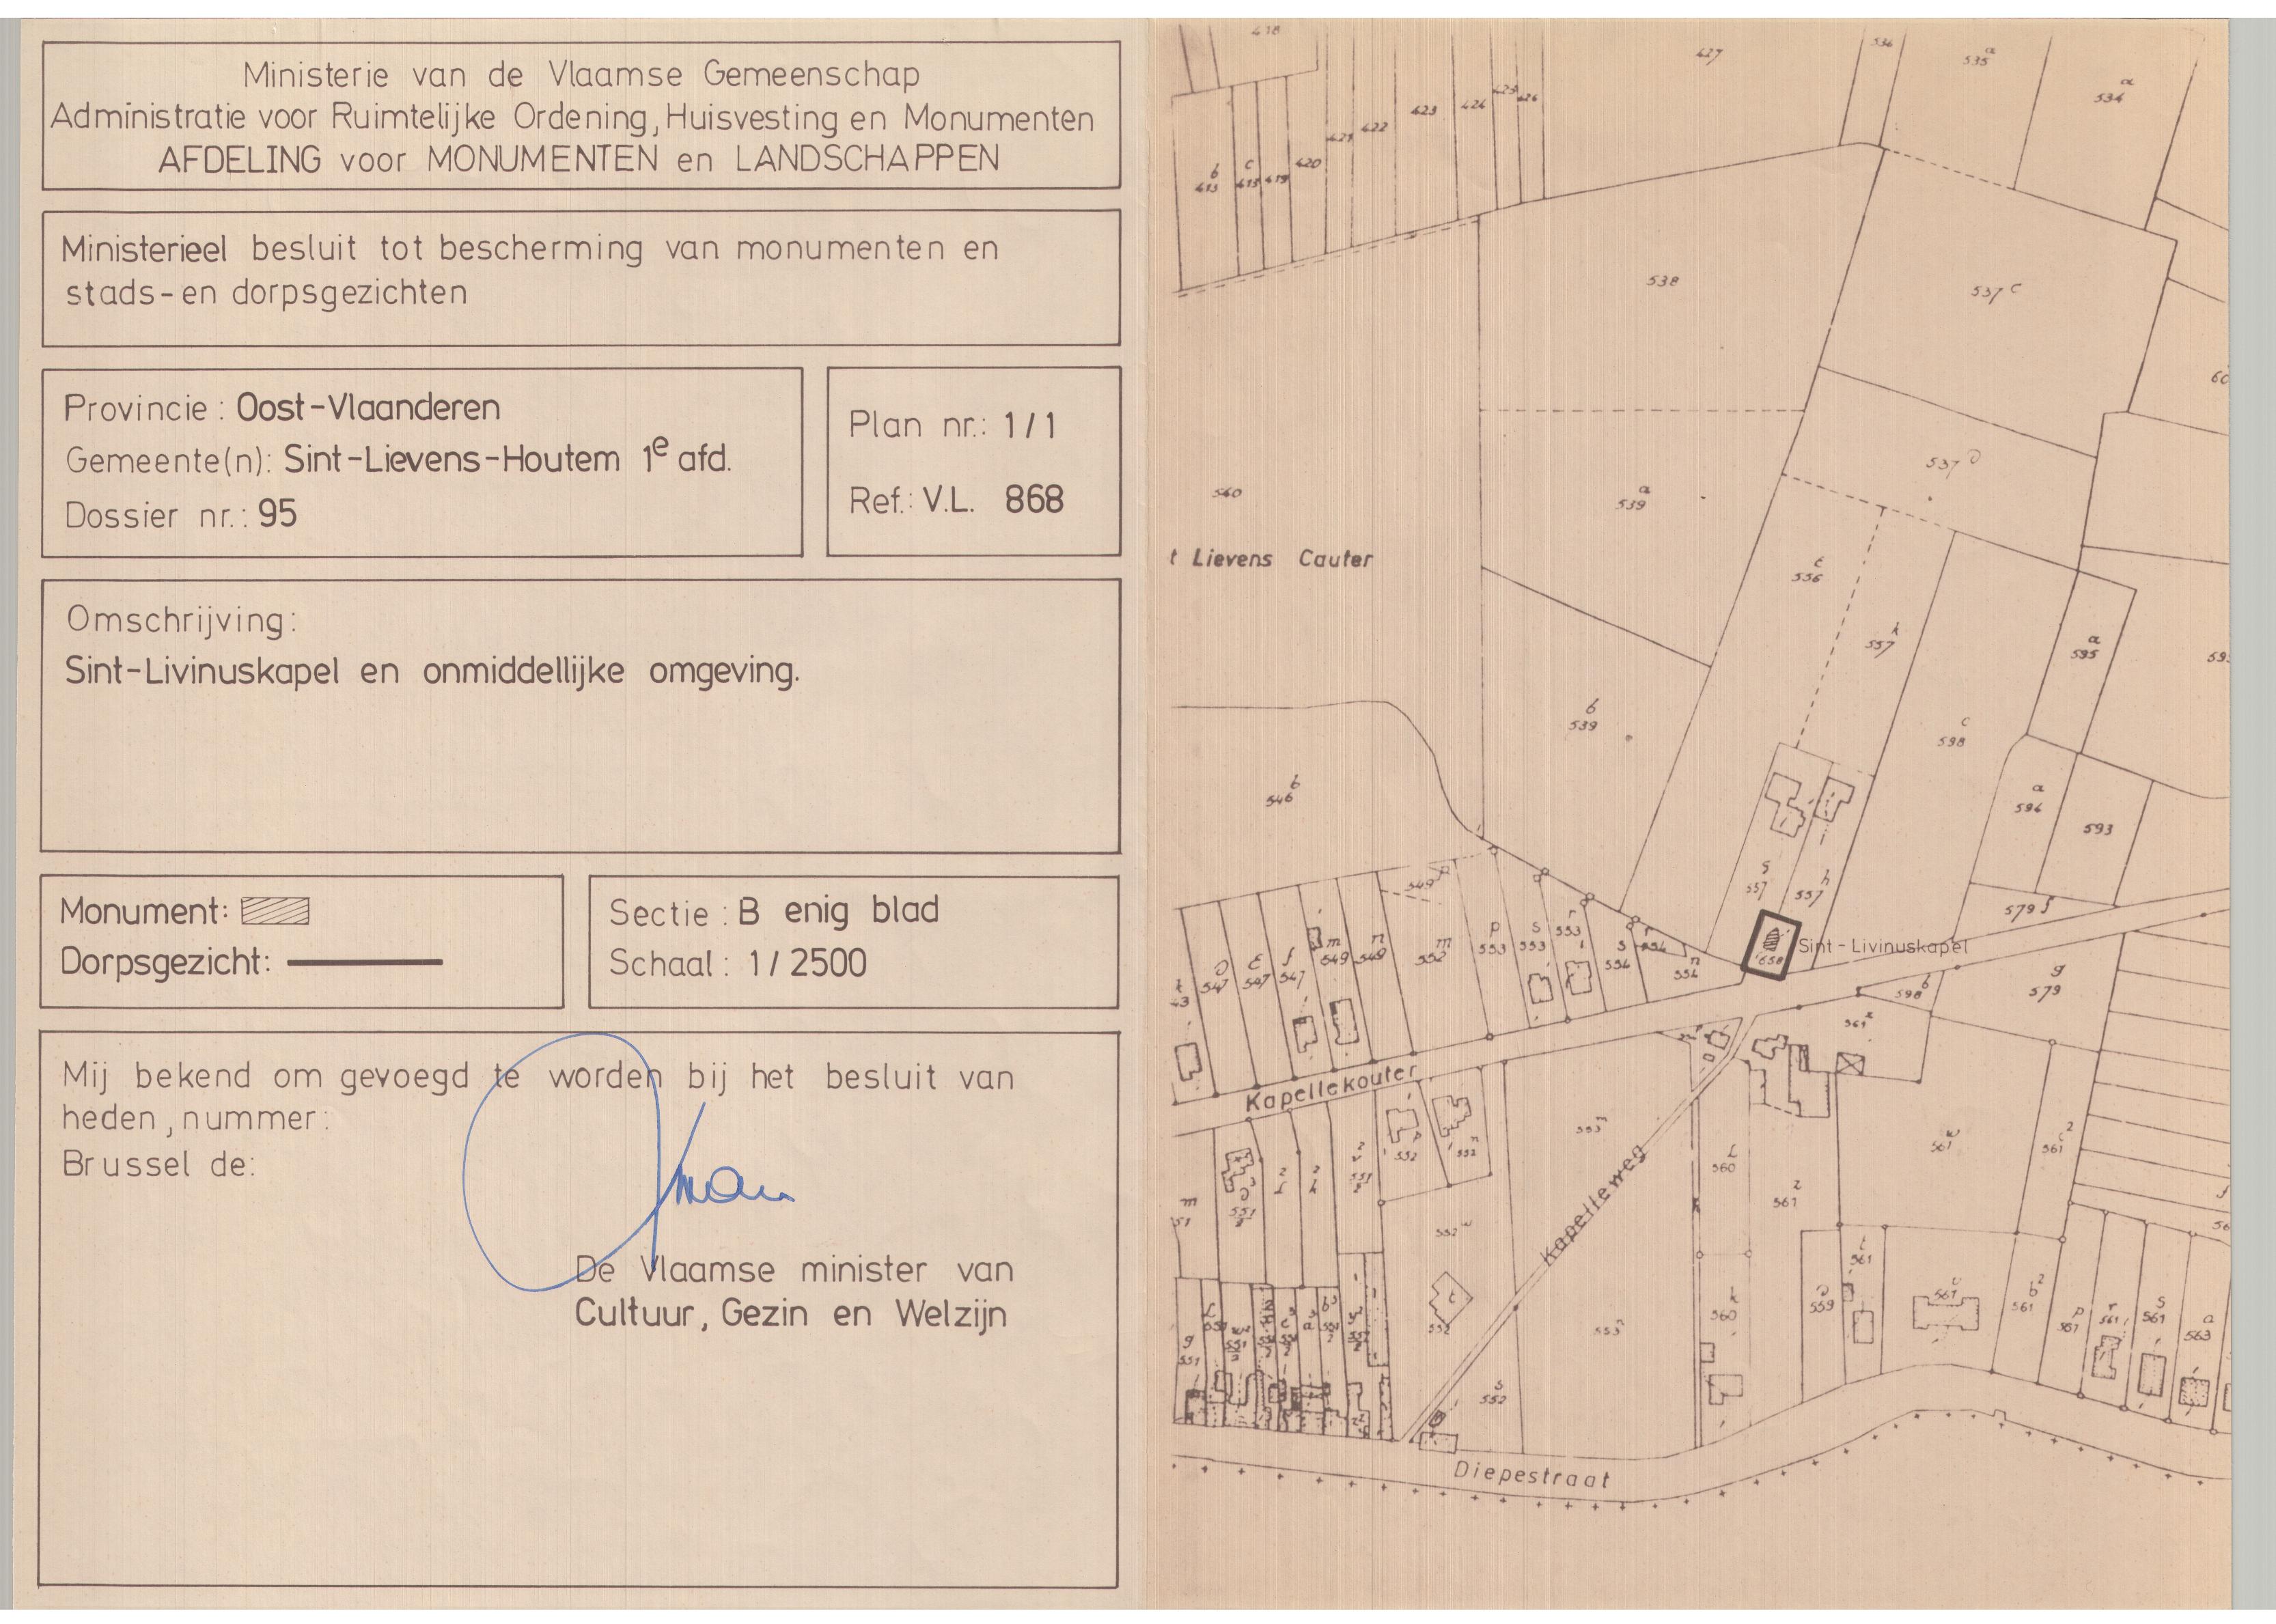 Ministerie van de Vlaamse Gemeenschap
Administratie voor Ruimtelijke Ordening, Huisvesting en Monumenten
AFDELING voor MONUMENTEN en LANDSCHAPPEN
Ministerieel besluit tot bescherming van monumenten en
stads-en dorpsgezichten
Provincie: Oost-Vlaanderen
Gemeente(n): Sint-Lievens-Houtem 1e afd.
Dossier nr.: 95
Plan nr.: 1/1
Ref.: V.L. 868
Omschrijving:
Sint-Livinuskapel en onmiddellijke omgeving.
Monument:
Dorpsgezicht:
Sectie: B enig blad
Schaal: 1/2500
Mij bekend om gevoegd te worden bij het besluit van
heden, nummer:
Brussel de:
De Vlaamse minister van
Cultuur, Gezin en Welzijn
418
427
536
535 a
534 a
423
424
425
426
421
422
420
419
413 b
413 c
538
537 c
537 d
560
539 a
t Lievens Cauter
556
557 k
595 a
539 b
598 c
546 b
594 a
593
557 s
557 h
579 f
Sint-Livinuskapel
658
549
547
547
547 f
549 m
549 n
552 m
553 p
553 s
553 r
554 s
554 r
554 n
598 b
579 g
561
Kapellekouter
Kapelleweg
552 p
552 n
553
560
561 z
561 w
561
552 w
552
553
560 k
559
561 t
561
561 b2
561 p
561 r
561 s
563 a
551 g
552 s
Diepestraat